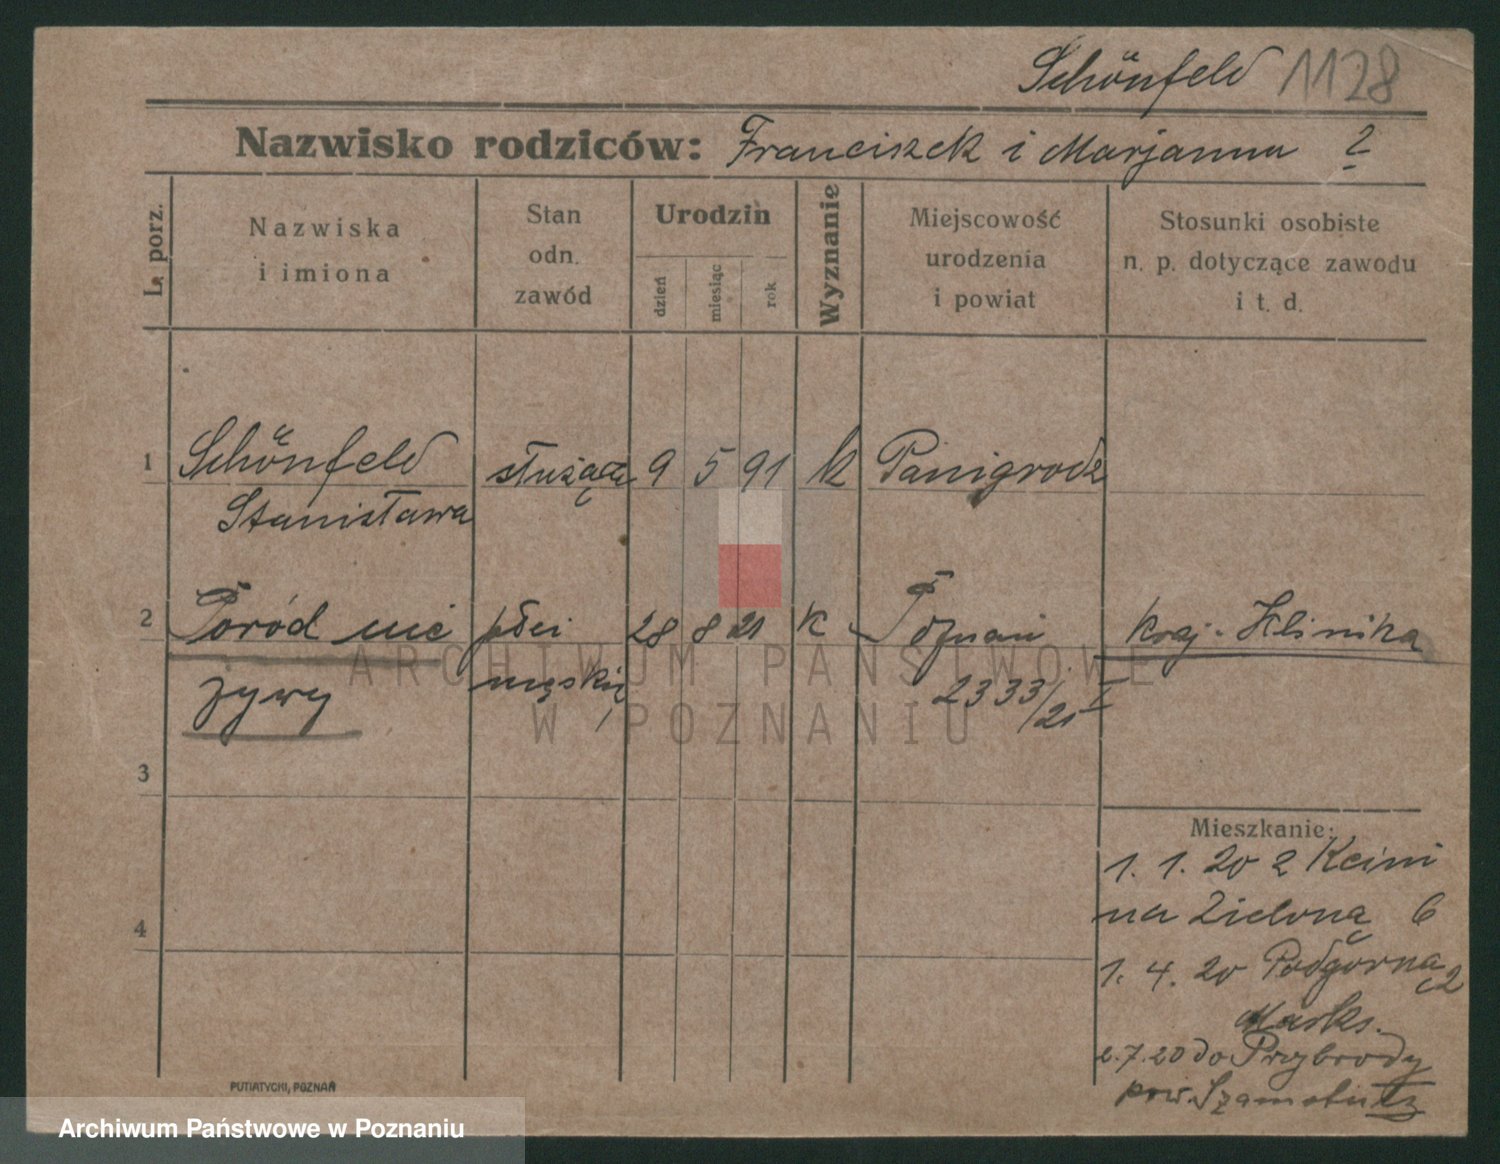 Schönfeld 1128
Nazwisko rodziców: Franciszek i Marjanna ?
L. porz.
Nazwiska
i imiona
Stan
odn.
zawód
Urodzin
dzień
miesiąc
rok
Wyznanie
Miejscowość
urodzenia
i powiat
Stosunki osobiste
n. p. dotyczące zawodu
i t. d.
1 Schönfeld służąca 9 5 91 k Panigrodz
Stanisława
2 Poród nie płci 28 8 21 k Poznań kraj. Klinika
żywy męskiej 2333/21 I
3
4
Mieszkanie:
1. 1. 20 z Kcini
na Zieloną 6
1. 4. 20 Podgórna 2
Marks.
2.7.20 do Przybrody
pow. Szamotuły
PUTIATYCKI, POZNAŃ
ARCHIWUM PAŃSTWOWE
W POZNANIU
Archiwum Państwowe w Poznaniu